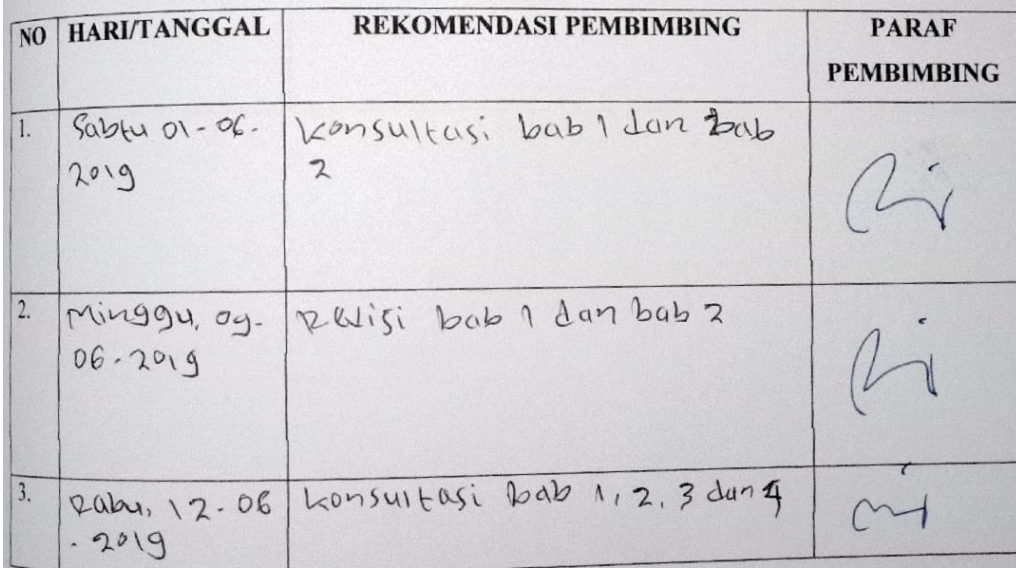 NO HARI/TANGGAL REKOMENDASI PEMBIMBING PARAF
PEMBIMBING
1. Sabtu 01-06- Konsultasi bab 1 dan bab
2019 2
2. Minggu, 09- Revisi bab 1 dan bab 2
06-2019
3. Rabu, 12-06 Konsultasi bab 1, 2, 3 dan 4
-2019